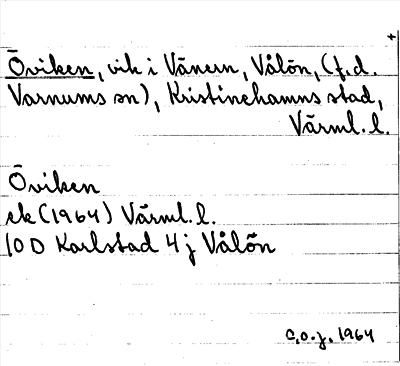 Öviken, vik i Vänern, Vålön, (f.d.
Varnums sn), Kristinehamns stad,
Värml. l.
Öviken
ek (1964) Värml. l.
10 D Karlstad 4 j Vålön
C.O.J. 1964